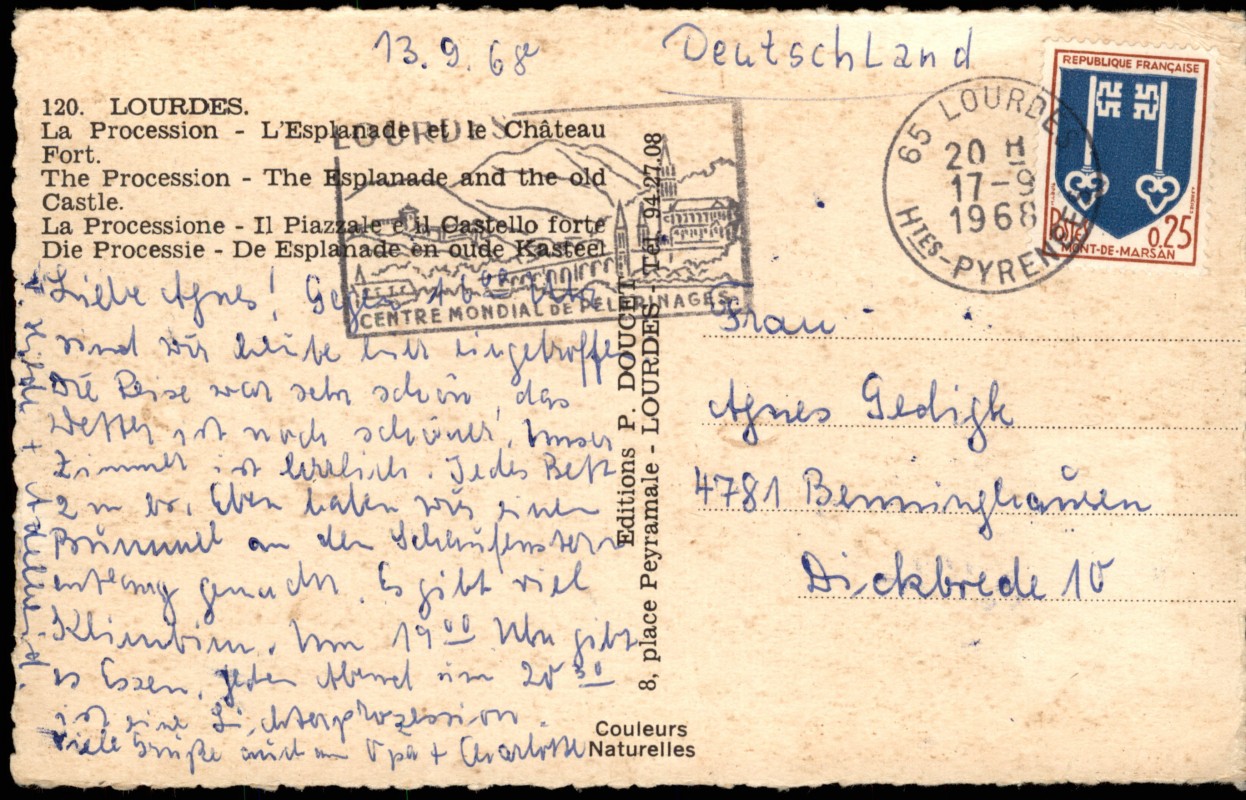 13.9.68
Deutschland
120. LOURDES.
La Procession - L'Esplanade et le Château
Fort.
The Procession - The Esplanade and the old
Castle.
La Processione - Il Piazzale e il Castello forte
Die Processie - De Esplanade en oude Kasteel
LOURDES
CENTRE MONDIAL DE PELERINAGES
65 LOURDES
20 H
17-9
1968
HTES-PYRENEES
REPUBLIQUE FRANÇAISE
POSTES
0,25
MONT-DE-MARSAN
Liebe Agnes! Gegen Uhr
sind wir heute hier eingetroffen
Die Reise war sehr schön, das
Wetter ist noch schöner. Unser
Zimmer ist herrlich. Jedes Bett
2 m br. Eben haben wir einen
Bummel an den Schaufenstern
entlang gemacht. Es gibt viel
Klimbim. Um 19 00 Uhr gibt
es Essen. Jeden Abend um 20 30
ist eine Lichterprozession.
Viele Grüße auch an Opa + Charlotte
Editions P. DOUCET
8, place Peyramale - LOURDES - Tél. 94-27.08
Couleurs
Naturelles
Frau
Agnes Gedigk
4781 Benninghausen
Dickbrede 10